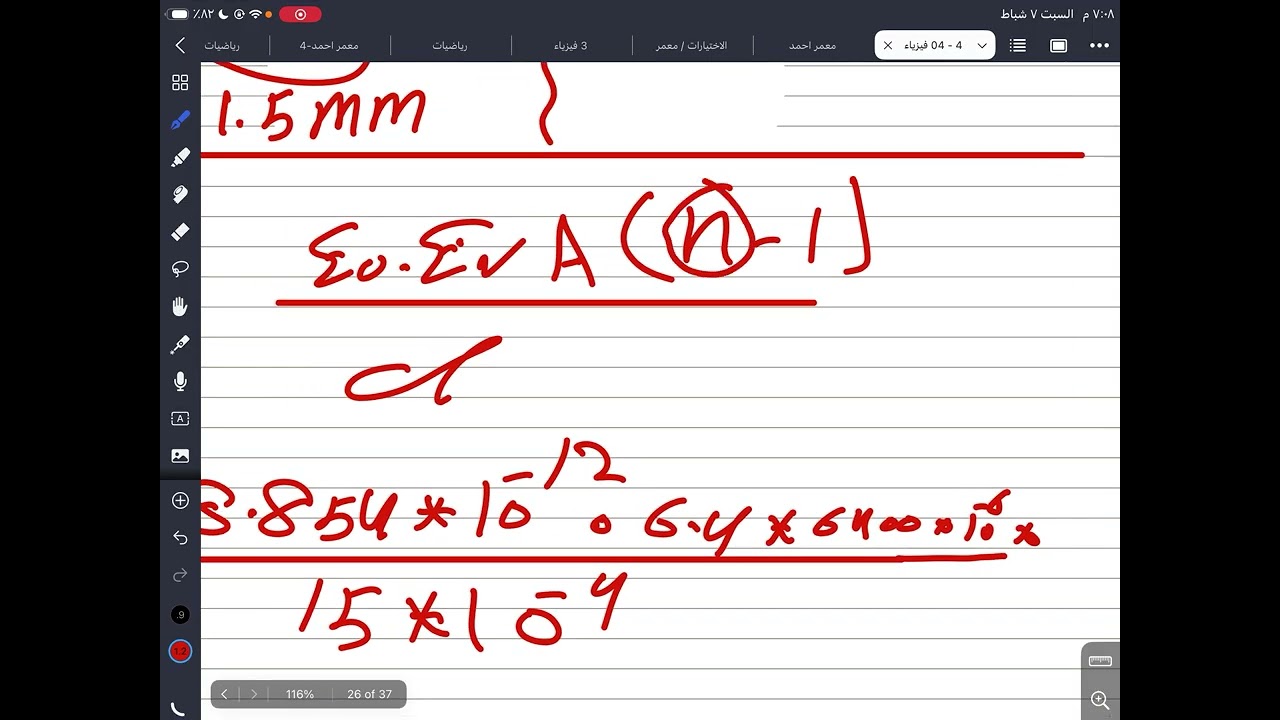 ٪٨٢
السبت ٧ شباط ٧:٠٨ م
رياضيات
معمر احمد-4
رياضيات
3 فيزياء
الاختبارات / معمر
معمر احمد
4 - 04 فيزياء
1.5mm
Σo.Σr A (n-1)
d
8.854*10^-12 . 6.4 * 6400*10^-6 *
15*10^-4
.9
1.2
A
116% 26 of 37